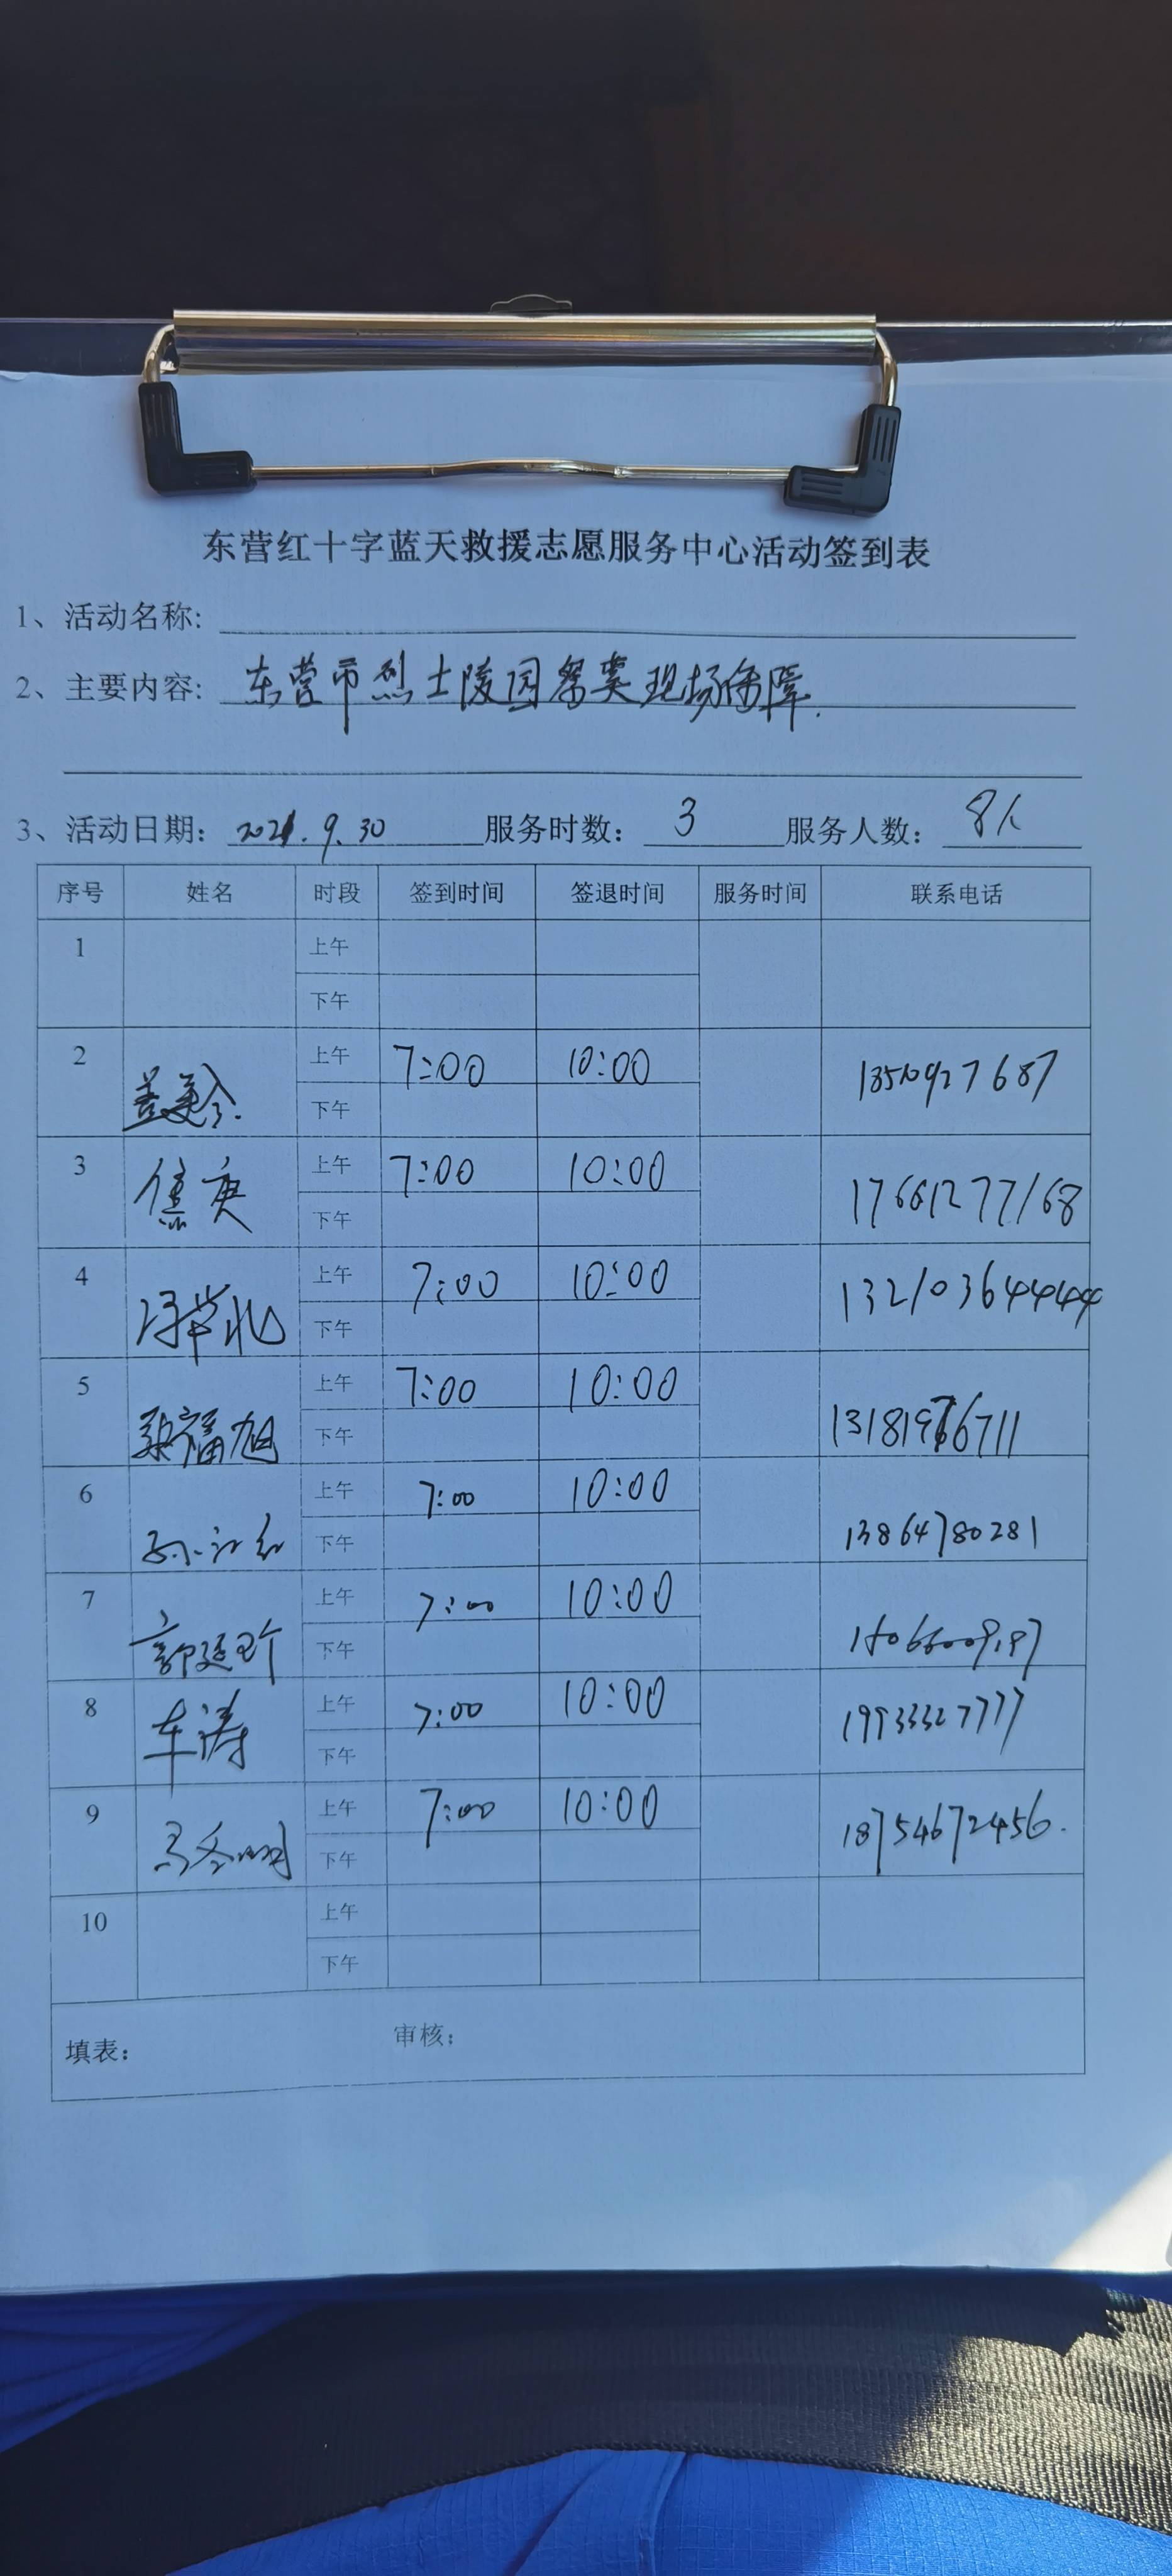 东营红十字蓝天救援志愿服务中心活动签到表
1、活动名称:
2、主要内容: 东营市烈士陵园祭奠现场保障.
3、活动日期: 2021.9.30 服务时数: 3 服务人数: 8人
序号 姓名 时段 签到时间 签退时间 服务时间 联系电话
1 上午
下午
2 盖美玲 上午 7:00 10:00
下午
3 焦庚 上午 7:00 10:00 17661277168
下午
4 上午 7:00 10:00 13210364444
下午
5 福旭 上午 7:00 10:00
下午
6 孙江红 上午 7:00 10:00 13864780281
下午
7 郭延 上午 7:00 10:00
下午
8 车涛 上午 7:00 10:00 19933327777
下午
9 马冬明 上午 7:00 10:00 18754672456.
下午
10 上午
下午
填表: 审核: